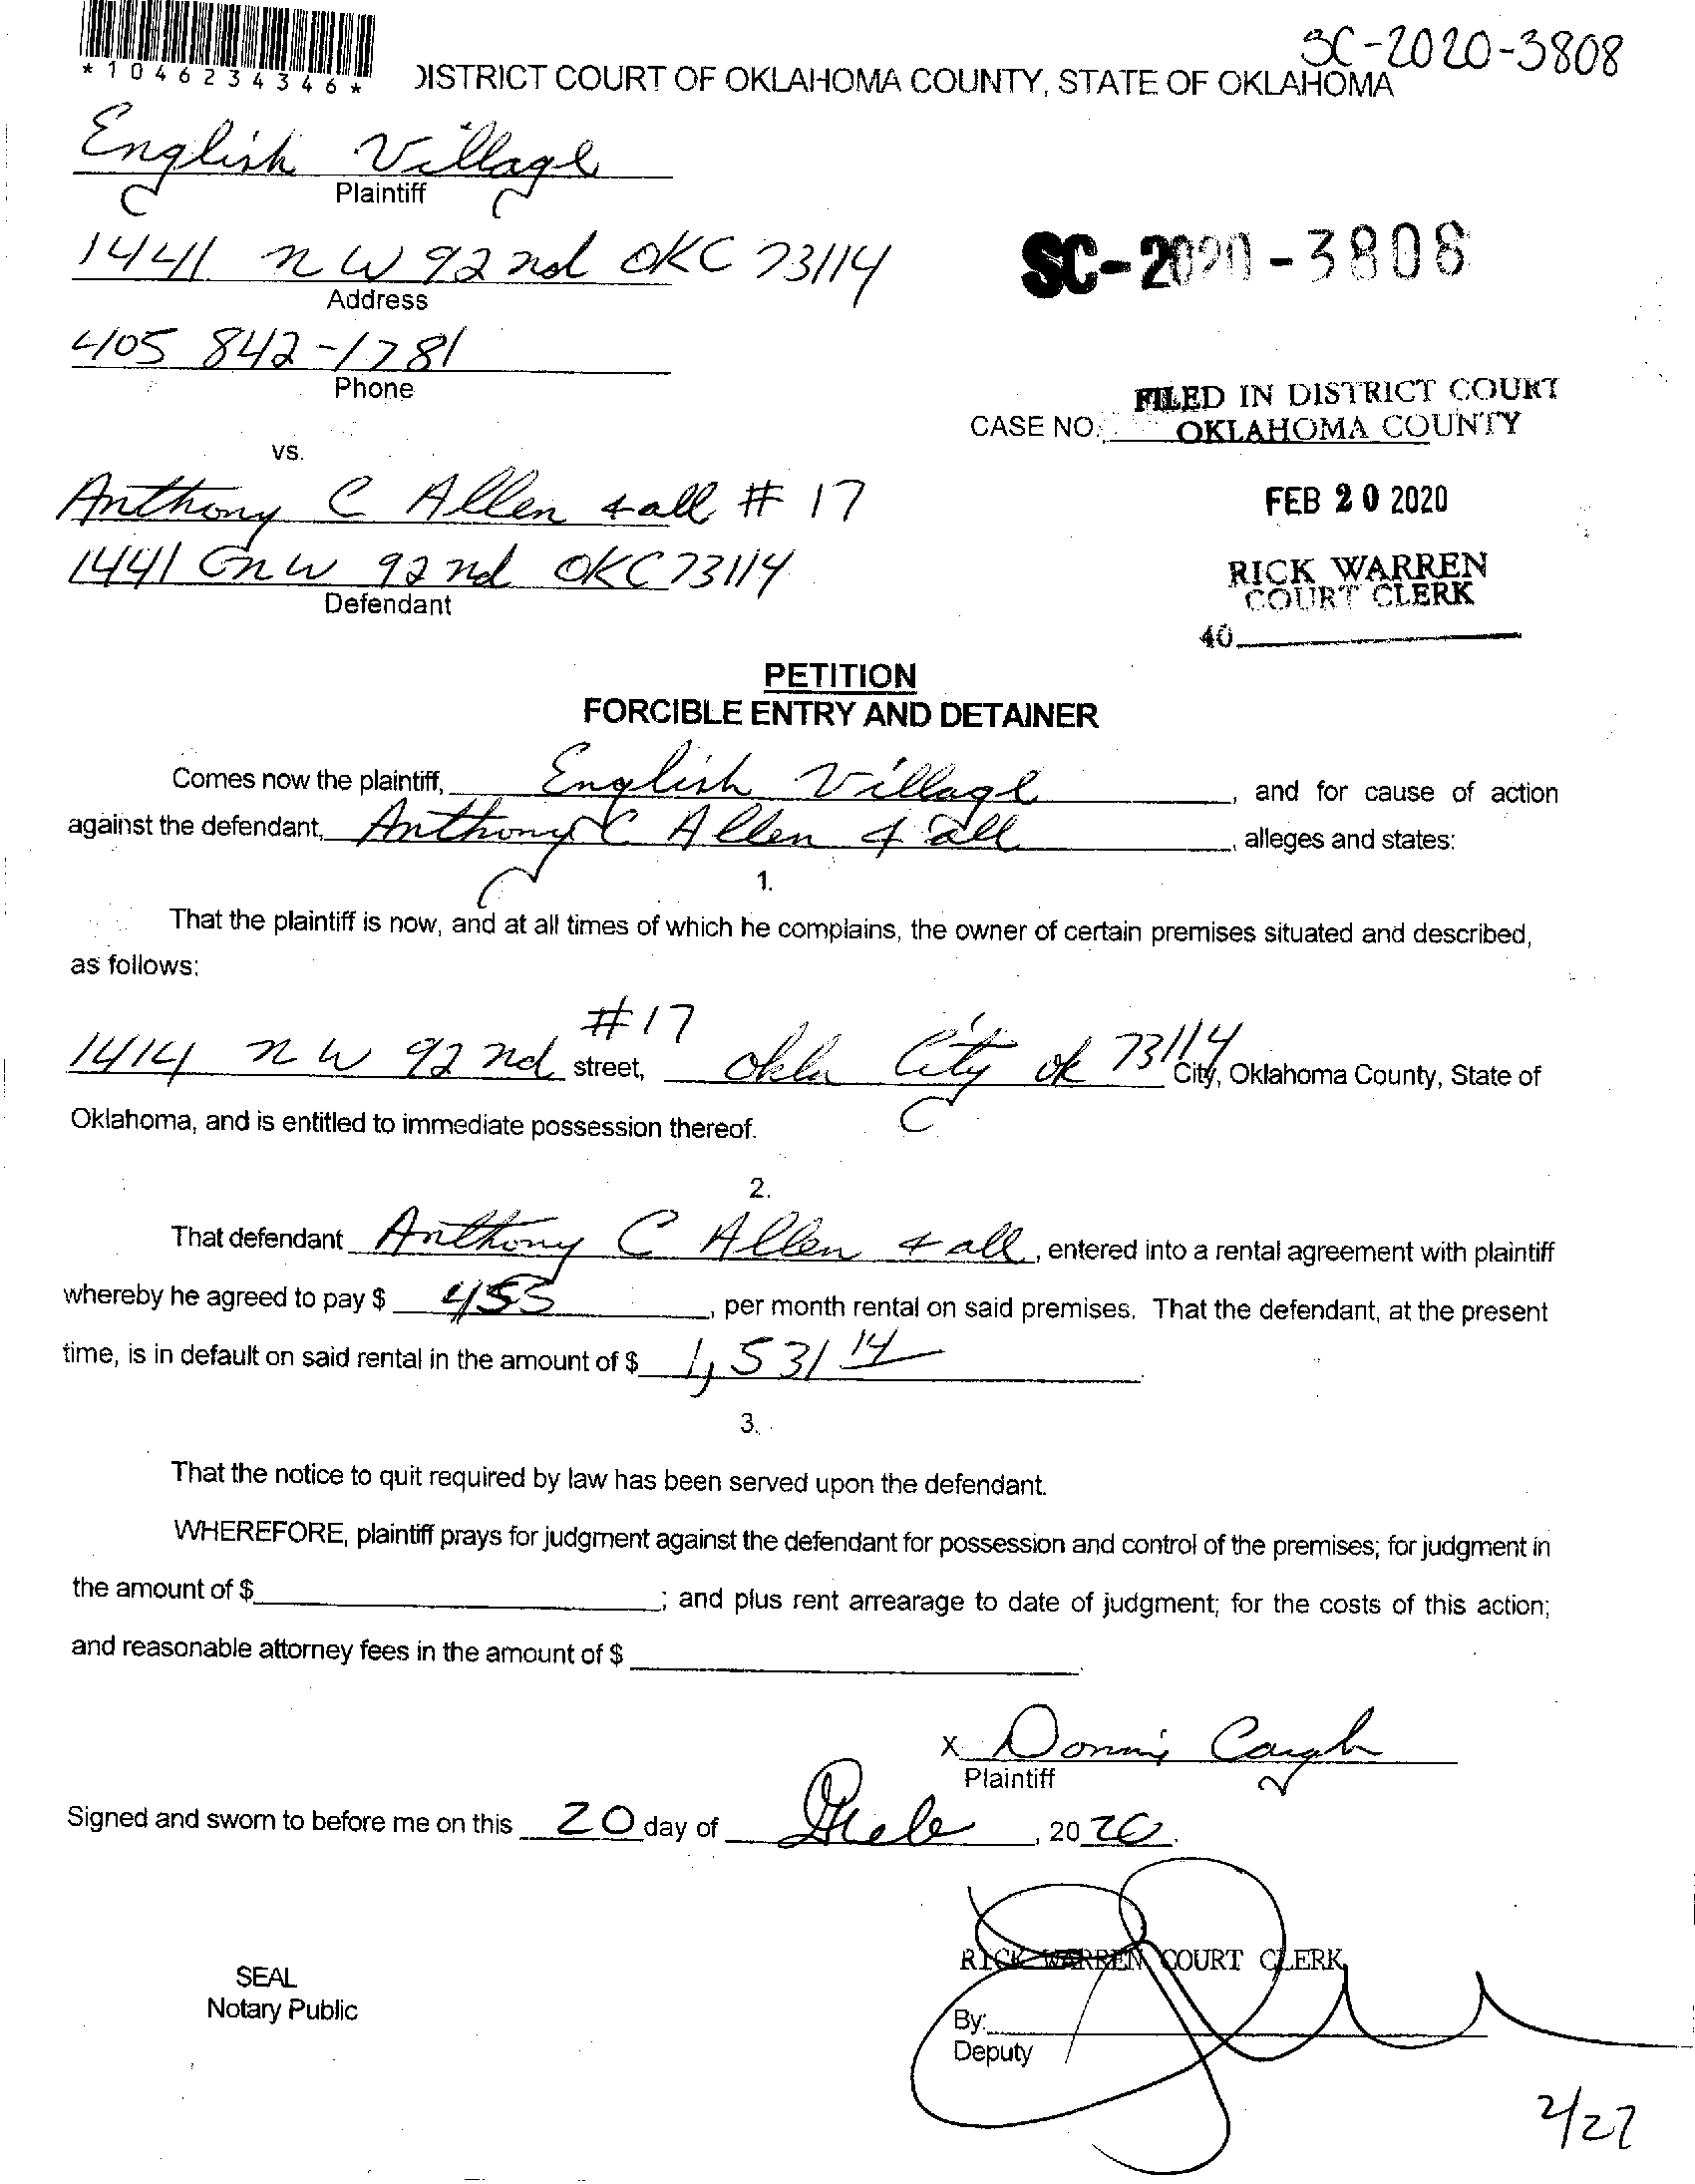 SC-2020-3808
*1046234346*
DISTRICT COURT OF OKLAHOMA COUNTY, STATE OF OKLAHOMA
English Village
Plaintiff
1441 NW 92nd OKC 73114
Address
SC-2020-3808
405 842-1781
Phone
FILED IN DISTRICT COURT
CASE NO. OKLAHOMA COUNTY
vs.
Anthony C Allen & all # 17
FEB 20 2020
1441 NW 92nd OKC 73114
Defendant
RICK WARREN
COURT CLERK
40
PETITION
FORCIBLE ENTRY AND DETAINER
Comes now the plaintiff, English Village, and for cause of action
against the defendant, Anthony C Allen & all, alleges and states:
1.
That the plaintiff is now, and at all times of which he complains, the owner of certain premises situated and described,
as follows:
#17
1414 NW 92nd street, Okla City ok 73114 City, Oklahoma County, State of
Oklahoma, and is entitled to immediate possession thereof.
2.
That defendant Anthony C Allen & all, entered into a rental agreement with plaintiff
whereby he agreed to pay $ 455, per month rental on said premises. That the defendant, at the present
time, is in default on said rental in the amount of $ 1,531 14.
3.
That the notice to quit required by law has been served upon the defendant.
WHEREFORE, plaintiff prays for judgment against the defendant for possession and control of the premises; for judgment in
the amount of $ ; and plus rent arrearage to date of judgment; for the costs of this action;
and reasonable attorney fees in the amount of $ .
x
Plaintiff
Signed and sworn to before me on this 20 day of , 2020.
RICK WARREN COURT CLERK
SEAL
Notary Public
By:
Deputy
2/27